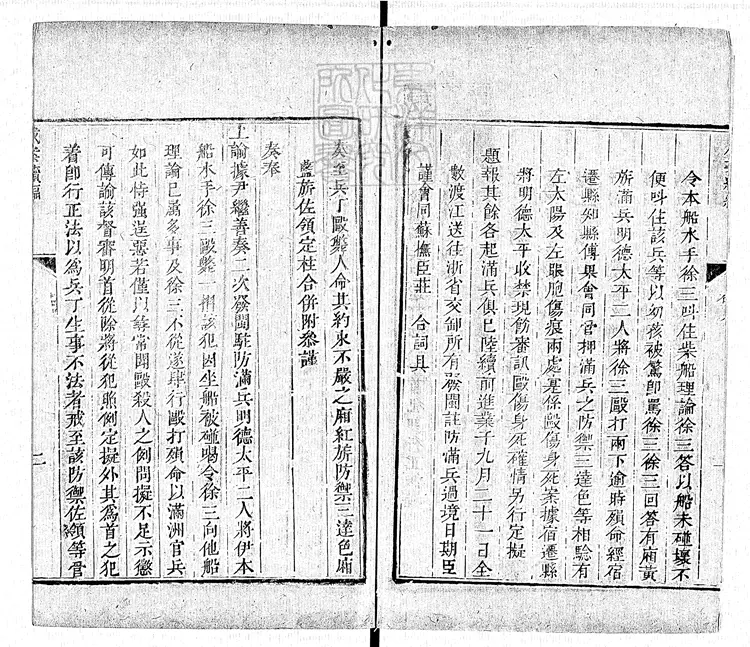 令本船水手徐三呌住柴船理論徐三答以船未碰壞不
便呌住該兵等以幼孩被驚卽罵徐三徐三回答有廂黃
旂滿兵明德太平二人將徐三毆打兩下逾時殞命經宿
遷縣知縣傅椝會同管押滿兵之防禦三達色等相驗有
左太陽及左眼胞傷痕兩處寔係毆傷身死案據宿遷縣
將明德太平收禁現飭審訊毆傷身死確情另行定擬
題報其餘各起滿兵俱已陸續前進業于九月二十一日全
數渡江送往浙省交卸所有發閩註防滿兵過境日期臣
謹會同蘇撫臣莊 合詞具
奏至兵丁毆斃人命其約束不嚴之廂紅旂防禦三達色廂
藍旂佐領定柱合併附叅謹
奏奉
上諭據尹繼善奏二次發閩駐防滿兵明德太平二人將伊本
船水手徐三毆斃一摺該犯因坐船被碰喝令徐三向他船
理論已屬多事及徐三不從遂肆行毆打殞命以滿洲官兵
如此恃强逞惡若僅以尋常閗毆殺人之例問擬不足示懲
可傳諭該督審明首從除將從犯照例定擬外其爲首之犯
着卽行正法以爲兵丁生事不法者戒至該防禦佐領等官
二